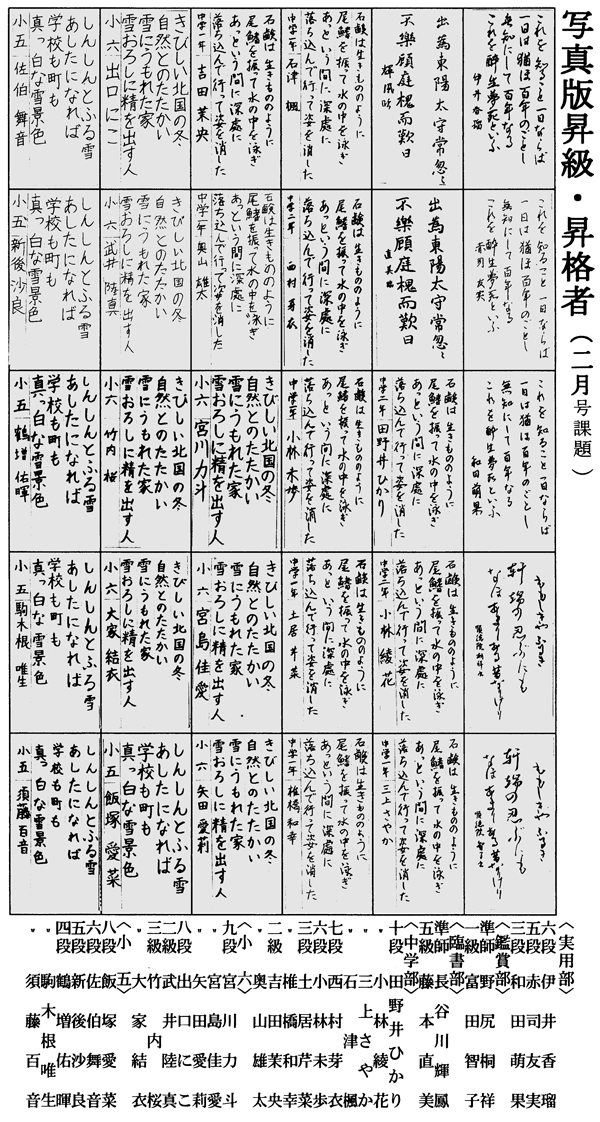 写真版昇級・昇格者(二月号課題)
これを知ること一日ならば
一日は猶ほ百年のごとし
無知にして百年なる
これを酔生夢死といふ
伊井香瑠
これを知ること一日ならば
一日は猶ほ百年のごとし
無知にして百年なる
これを酔生夢死といふ
赤司友実
これを知ること一日ならば
一日は猶ほ百年のごとし
無知にして百年なる
これを酔生夢死といふ
和田萌果
ももしきやふるき
軒端の忍ぶにも
なほあまりある昔なりけり
ももしきやふるき
軒端の忍ぶにも
なほあまりある昔なりけり
出為東陽太守常忽々
不樂顧庭槐而歎曰
輝鳳臨
出為東陽太守常忽々
不樂顧庭槐而歎曰
直美臨
石鹸は生きもののように
尾鰭を振って水の中を泳ぎ
あっという間に深處に
落ち込んで行って姿を消した
中学二年 田野井ひかり
石鹸は生きもののように
尾鰭を振って水の中を泳ぎ
あっという間に深處に
落ち込んで行って姿を消した
中学二年 小林綾花
石鹸は生きもののように
尾鰭を振って水の中を泳ぎ
あっという間に深處に
落ち込んで行って姿を消した
中学一年 三上さやか
石鹸は生きもののように
尾鰭を振って水の中を泳ぎ
あっという間に深處に
落ち込んで行って姿を消した
中学一年 石津楓
石鹸は生きもののように
尾鰭を振って水の中を泳ぎ
あっという間に深處に
落ち込んで行って姿を消した
中学二年 西村芽衣
石鹸は生きもののように
尾鰭を振って水の中を泳ぎ
あっという間に深處に
落ち込んで行って姿を消した
小林未歩
石鹸は生きもののように
尾鰭を振って水の中を泳ぎ
あっという間に深處に
落ち込んで行って姿を消した
中学一年 土居芹菜
石鹸は生きもののように
尾鰭を振って水の中を泳ぎ
あっという間に深處に
落ち込んで行って姿を消した
中学一年 椎橋和幸
石鹸は生きもののように
尾鰭を振って水の中を泳ぎ
あっという間に深處に
落ち込んで行って姿を消した
中学一年 吉田茉央
石鹸は生きもののように
尾鰭を振って水の中を泳ぎ
あっという間に深處に
落ち込んで行って姿を消した
中学一年 奥山雄太
きびしい北国の冬
自然とのたたかい
雪にうもれた家
雪おろしに精を出す人
小六 宮川力斗
きびしい北国の冬
自然とのたたかい
雪にうもれた家
雪おろしに精を出す人
小六 宮島佳愛
きびしい北国の冬
自然とのたたかい
雪にうもれた家
雪おろしに精を出す人
小六 矢田愛莉
きびしい北国の冬
自然とのたたかい
雪にうもれた家
雪おろしに精を出す人
小六 出口にこ
きびしい北国の冬
自然とのたたかい
雪にうもれた家
雪おろしに精を出す人
小六 武井陸真
きびしい北国の冬
自然とのたたかい
雪にうもれた家
雪おろしに精を出す人
小六 竹内桜
きびしい北国の冬
自然とのたたかい
雪にうもれた家
雪おろしに精を出す人
小六 大家結衣
しんしんとふる雪
あしたになれば
学校も町も
真っ白な雪景色
小五 飯塚愛菜
しんしんとふる雪
あしたになれば
学校も町も
真っ白な雪景色
小五 佐伯舞音
しんしんとふる雪
あしたになれば
学校も町も
真っ白な雪景色
小五 新後沙良
しんしんとふる雪
あしたになれば
学校も町も
真っ白な雪景色
小五 鶴増佑暉
しんしんとふる雪
あしたになれば
学校も町も
真っ白な雪景色
小五 駒木根唯生
しんしんとふる雪
あしたになれば
学校も町も
真っ白な雪景色
小五 須藤百音
〈実用部〉
六段 伊井香瑠
五段 赤司友実
三段 和田萌果
〈鑑賞部〉
準師 野尻桐祥
一級 富田智子
〈臨書部〉
準師 長谷川輝鳳
五級 藤本直美
〈中学部〉
十段 田野井ひかり
〃 小林綾花
〃 三上さやか
〃 石津楓
七段 西村芽衣
六段 小林未歩
三段 土居芹菜
〃 椎橋和幸
二級 吉田茉央
〃 奥山雄太
〈小六〉
九段 宮川力斗
〃 宮島佳愛
〃 矢田愛莉
八段 出口にこ
二級 武井陸真
三級 竹内桜
〃 大家結衣
〈小五〉
八段 飯塚愛菜
六段 佐伯舞音
五段 新後沙良
四段 鶴増佑暉
〃 駒木根唯生
〃 須藤百音